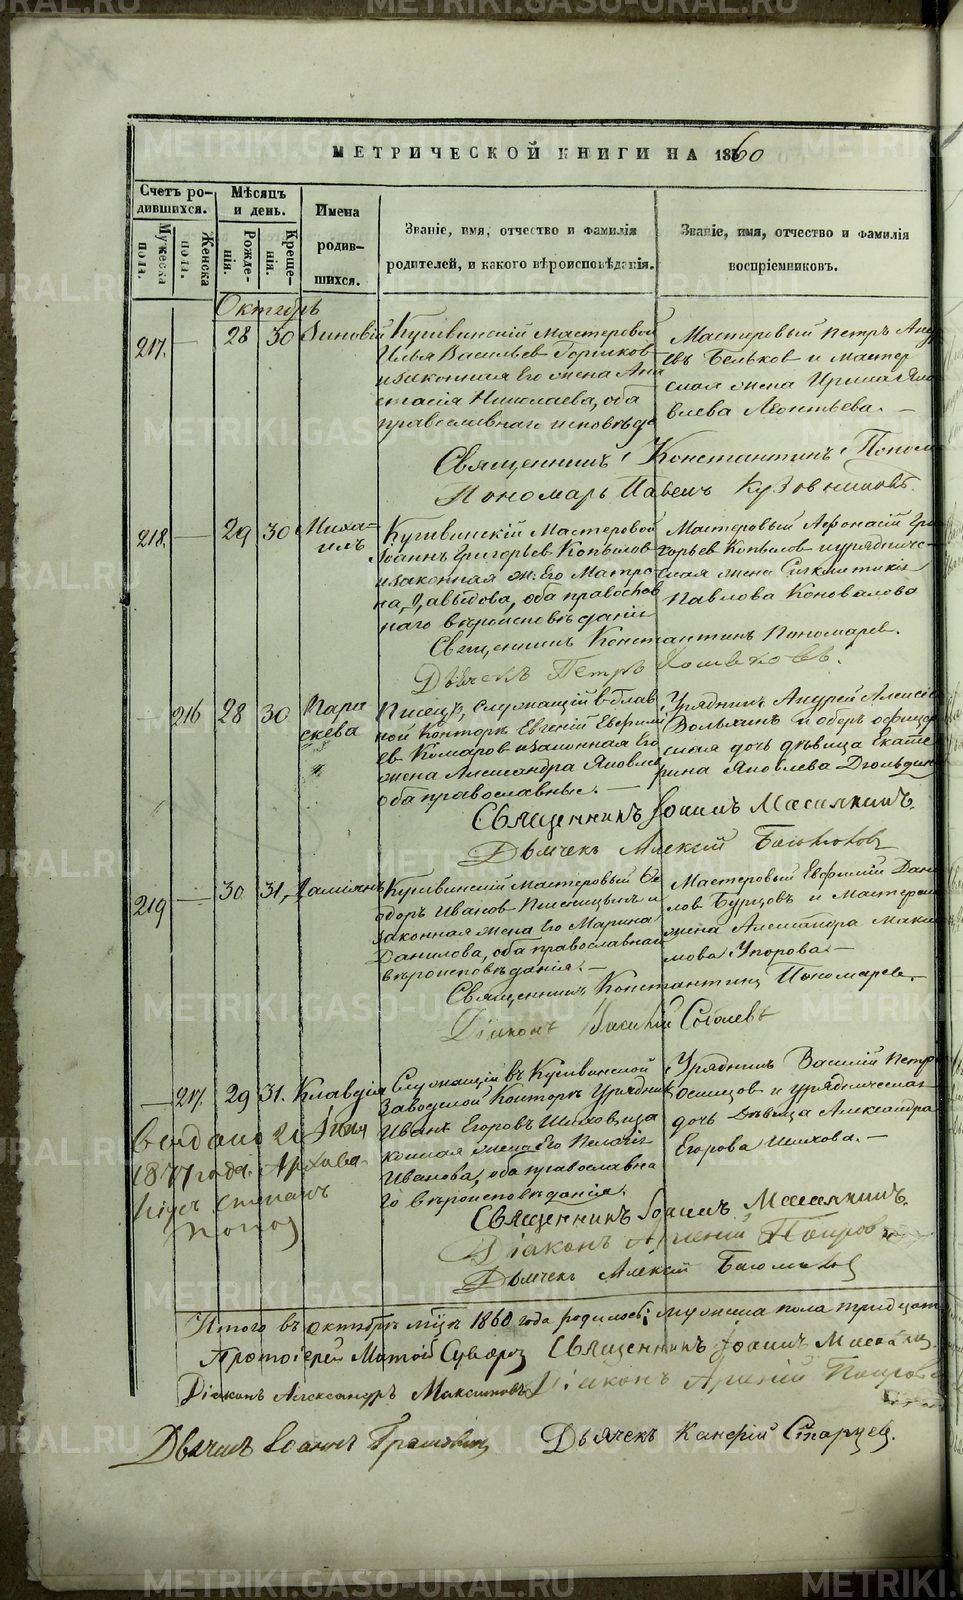 МЕТРИЧЕСКОЙ КНИГИ НА 1860
Счетъ ро-
дившихся.
Мужеска
пола.
Женска
пола.
Мѣсяцъ
и день.
Рожде-
нія.
Креще-
нія.
Имена
родив-
шихся.
Званіе, имя, отчество и фамилія
родителей, и какого вѣроисповѣданія.
Званіе, имя, отчество и фамилія
воспріемниковъ.
Октябрь
217. — 28 30 Зиновій
Кушвинскій мастеровой
Илья Васильевъ
и законная его жена Ана
стасія Николаева, оба
православнаго исповѣда
Мастеровый Петръ Андре
евъ Бельков и мастер
ская жена Ирина Яко
влева Леонтьева. —
Священникъ Константинъ Поном
Пономарь Павелъ Кузовниковъ.
218. — 29 30 Миха-
илъ
Кушвинскій мастеровой
Іоаннъ Григорьев Копылов
и законная ж: его Матро
на Давыдова, оба православ
наго вѣроисповѣданія
Мастеровый Афонасій Гри
горьев Копылов и уряднич-
ская жена Синклитикія
Павлова Коновалова
Священникъ Константинъ Пономарев.
Дьячекъ Петръ
— 216 28 30 Пара
скева
Писецъ, служащій в глав
ной конторѣ Евгеній Евфими
ев Комаров и законная его
жена Александра Яковлев
оба православные. —
Урядникъ Андрей Алексіе
и оберъ офицер
ская дочь дѣвица Екате
рина Яковлева
Священникъ Іоаннъ
Дьячекъ Алексій
219 — 30 31. Даміянъ
Кушвинскій мастеровый Ѳе
доръ Иванов Пшеницынъ и
законная жена его Марина
Данилова, оба православнаго
вѣроисповѣданія. —
Мастеровый Евфимій Дани
лов Бурцовъ и мастерская
жена Александра Макси
мова Упорова. —
Священникъ Константинъ Пономарев.
Діаконъ Василій
— 217. 29 31. Клавдія
Служащій въ Кушвинской
заводской конторѣ урядник
Иванъ Егоровъ Шихов и за
конная жена его Пелагія
Иванова, оба православна
го вѣроисповѣданія.
Урядникъ Василій Петро
и урядническая
дочь дѣвица Александра
Егорова Шихова. —
Выдано 21
1877 года.
Священникъ Іоаннъ
Діаконъ Арсеній
Дьячекъ Алексій
Итого въ октябрѣ мцѣ 1860 года родилось: мужеска пола тридцать
Протоіерей Матѳій Священникъ Іоаннъ
Діаконъ Александръ Максимовъ Діаконъ Арсеній
Дьячекъ Іоаннъ Дьячекъ
METRIKI.GASO-URAL.RU